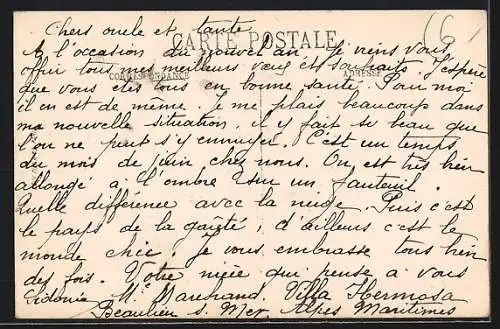 Chers oncle et tante
CARTE POSTALE
CORRESPONDANCE
ADRESSE
A l'occasion du nouvel an je viens vous
offrir tous mes meilleurs vœux et souhaits. J'espère
que vous êtes tous en bonne santé. Pour moi
il en est de même. je me plais beaucoup dans
ma nouvelle situation, il y fait si beau que
l'on ne peut s'y ennuyer. C'est un temps
du mois de juin chez nous. On est très bien
allongé à l'ombre sur un fauteuil.
Quelle différence avec la neige. Puis c'est
le pays de la gaîté, d'ailleurs c'est le
monde chic. Je vous embrasse tous bien
des fois. Votre nièce qui pense à vous
Sidonie M. Marchand. Villa Hermosa
Beaulieu s. Mer. Alpes Maritimes